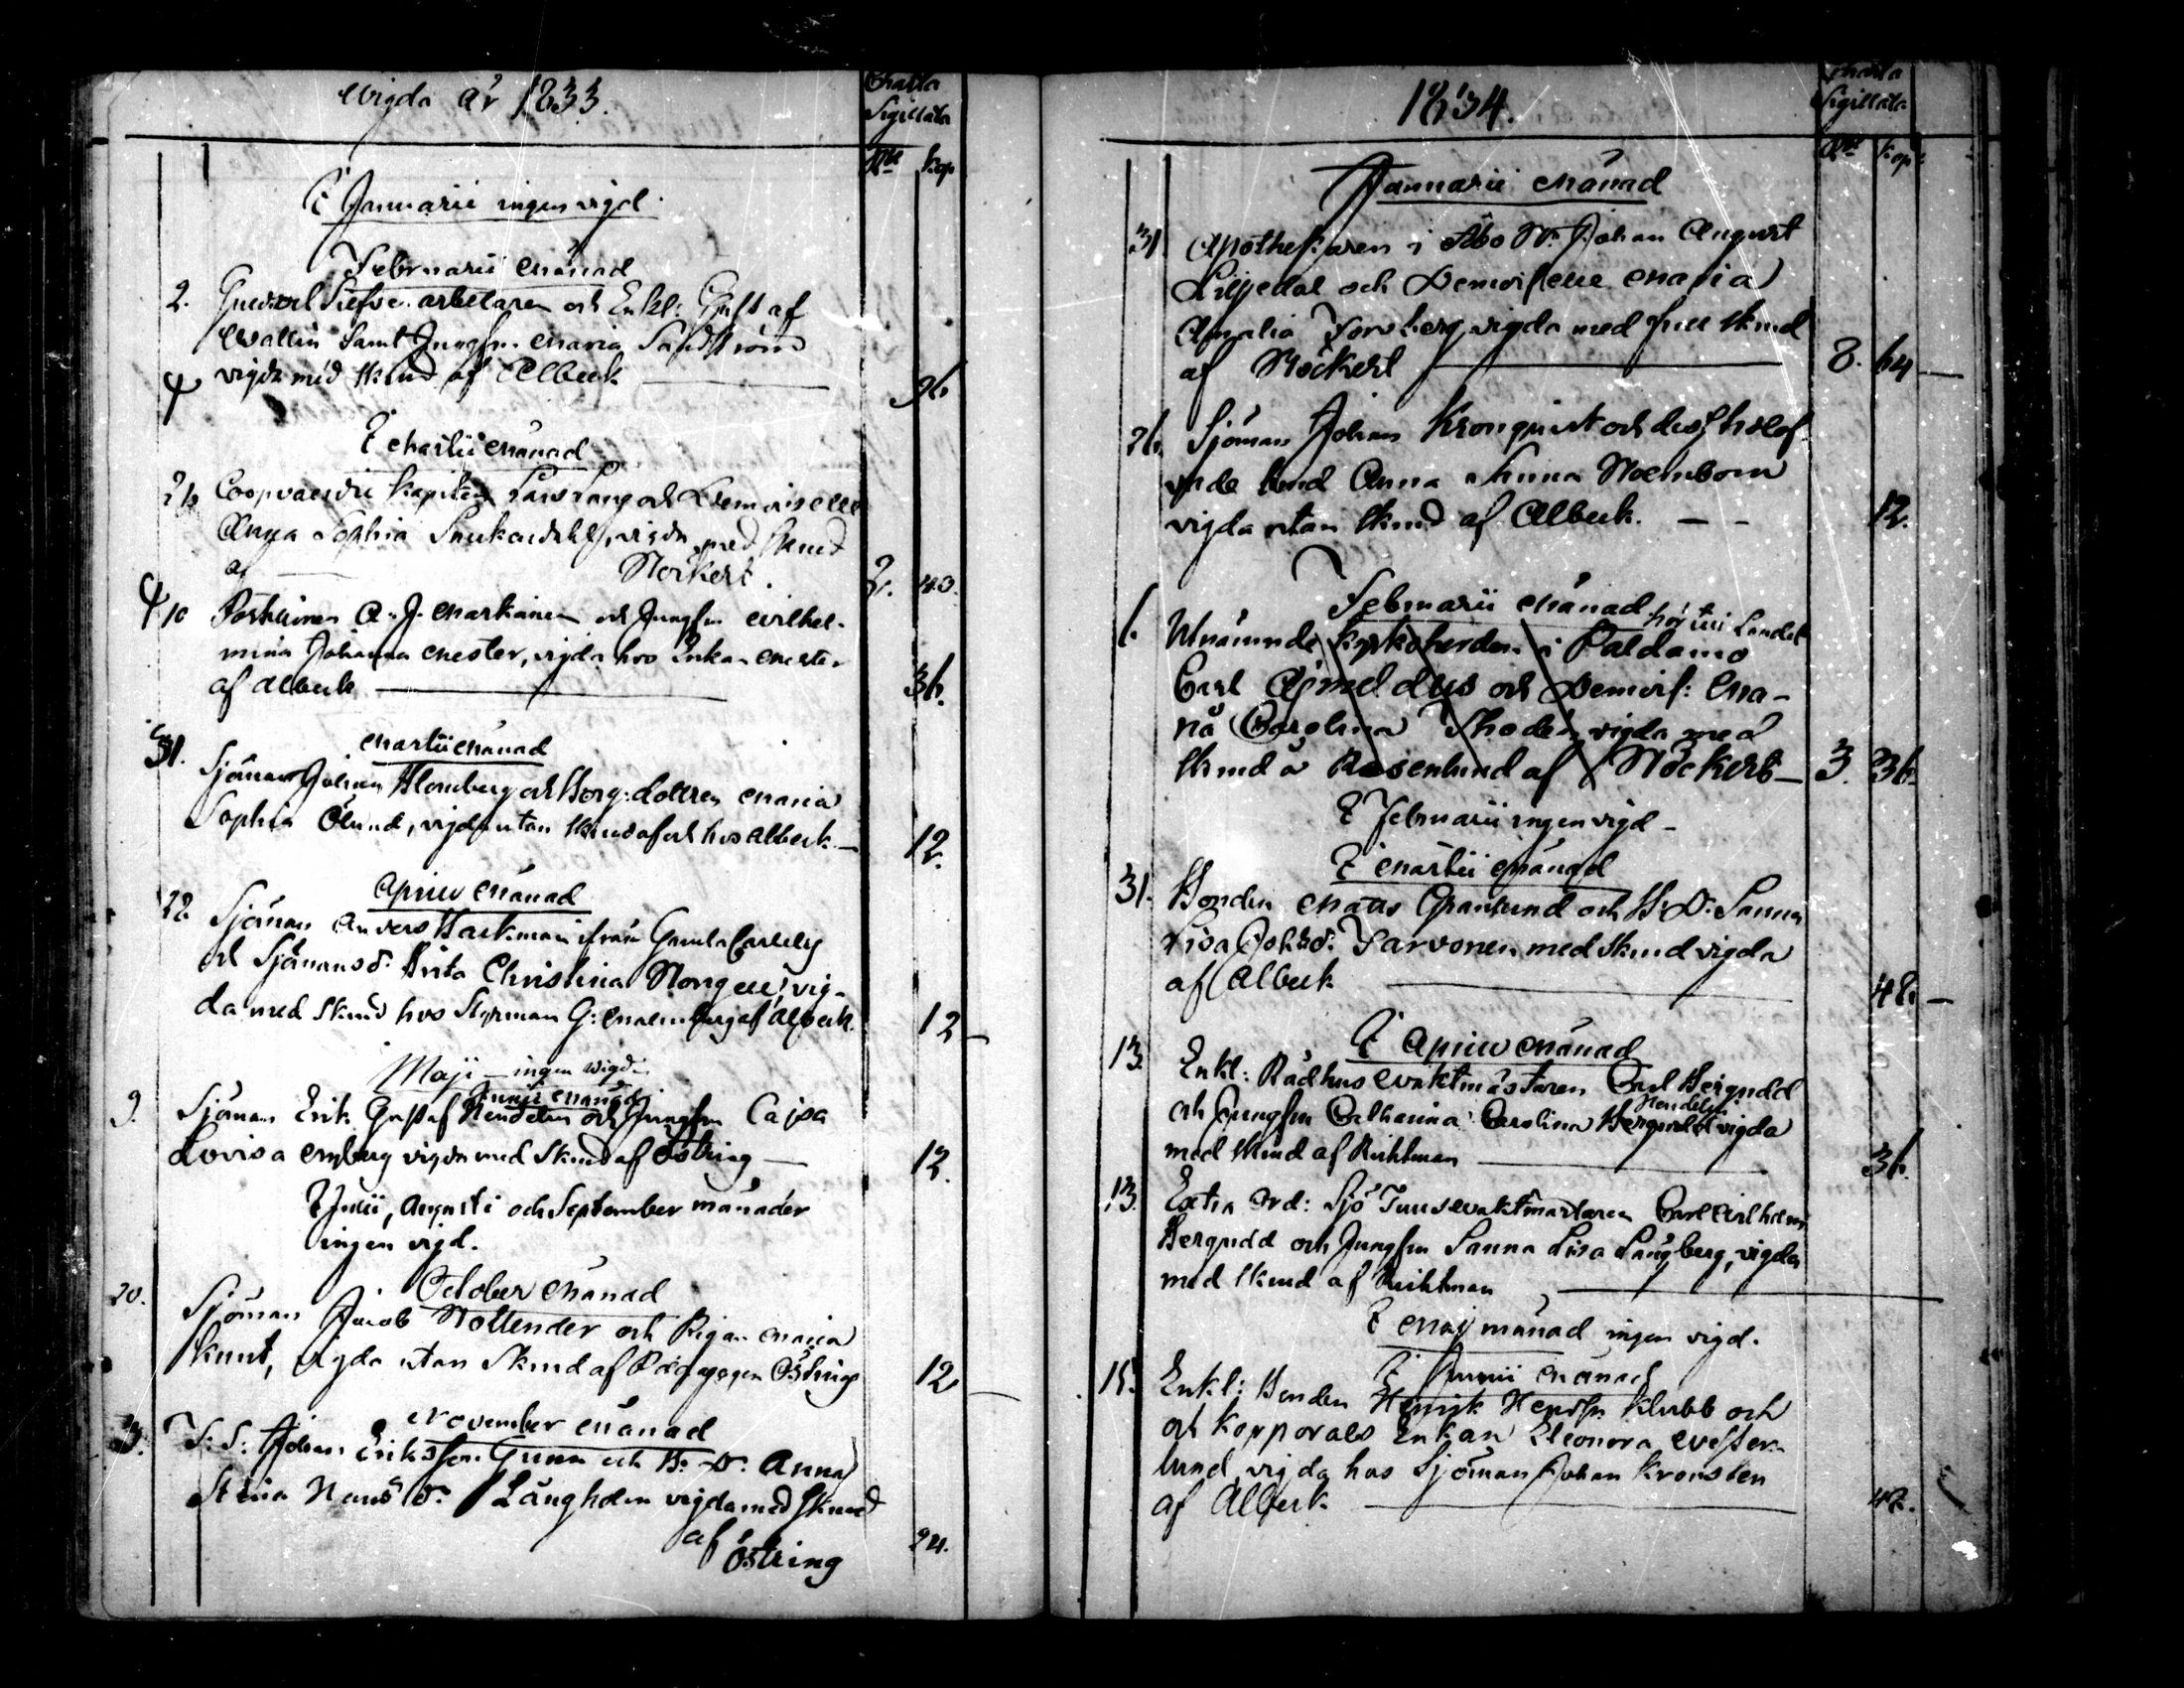 Wigda år 1833.
Charta
Sigillata
Rbl Kop
I Januarii ingen vigd.
Februarii Månad
2. arbetaren och Enkl: Gust af
Wallin samt Jungfru Maria Sandström
vigda med skrud af Albeck — 36.
I Martii Månad
26 Coopvaerdie Kapiten Lars Lang och Demoiselle
Anna Sophia vigda med skrud
af — Stockert. 2. 40.
10 A. J. Markanen och Jungfru Wilhel-
mina Johanna Mester, vigda hos Enkan Mester
af Albeck — 36.
Martii Månad
31. Sjöman Johan Blomberg och Borg: dottren Maria
Sophia Ölund, vigda utan skrud af och hos Albeck — 12.
April Månad
22. Sjöman Anders Backman från Gamla Carleby
och Sjömansd. Brita Christina Norgrell, vig-
da med skrud hos Styrman G: Malmberg af Albeck. 12 —
Maji — ingen wigd.
Junii Månad
9. Sjöman Erik Gustaf Hendelin och Jungfru Cajsa
Lovisa Myrberg vigda med skrud af Östring — 12.
I Julii, Augusti och September månader
ingen vigd.
October Månad
20. Sjöman Jacob Hollender och Pigan Maria
Knut, vigda utan skrud af Pædagogen Östring 12 —
November Månad
T: S: Johan Eriksson Gunn och B: D: Anna
Stina Hansd. Långholm vigda med skrud
af Östring 24.
1834.
Charta
Sigillata
Rbl Kop
Januarii Månad
31. Apothekaren i Åbo Hr. Johan August
Liljedal och Demoiselle Maria
Amalia Forsberg, vigda med full skrud
af Stockert — 8. 64 —
26. Sjöman Johan Kronqvist och dess trolof-
vade brud Anna Stina Holmbom
vigda utan skrud af Albeck. — — 12.
Februarii Månad hör till Landet
6. Utnämnde Kyrkoherden i Paldamo
Carl Ajmelæus och Demois: Ma-
ria Carolina Thoden vigda med
skrud å Rosenlund af Stockert — 3. 36.
I Februarii ingen vigd —
I Martii Månad
31. Bonden Matts Granlund och B: D: Sanna
Lisa Johsd: Sarvonen med skrud vigda
af Albeck — 48. —
I April Månad
13. Enkl: Rådhus Waktmästaren Carl Bergudd
Hendelin
och Jungfru Catharina Carolina Bergudd vigda
med skrud af Richtman — 36.
13. Extra Ord: Sjö Tulls Waktmästaren Carl Wilhelm
Bergudd och Jungfru Sanna Lisa Långberg, vigda
med skrud af Richtman —
I Maj månad ingen vigd.
I Junii Månad
15. Enkl: Bonden Henrik Hendrs: Klubb och
och Korporals Enkan Eleonora Wester-
lund, vigda hos Sjöman Johan Kronsten
af Albeck — 42.